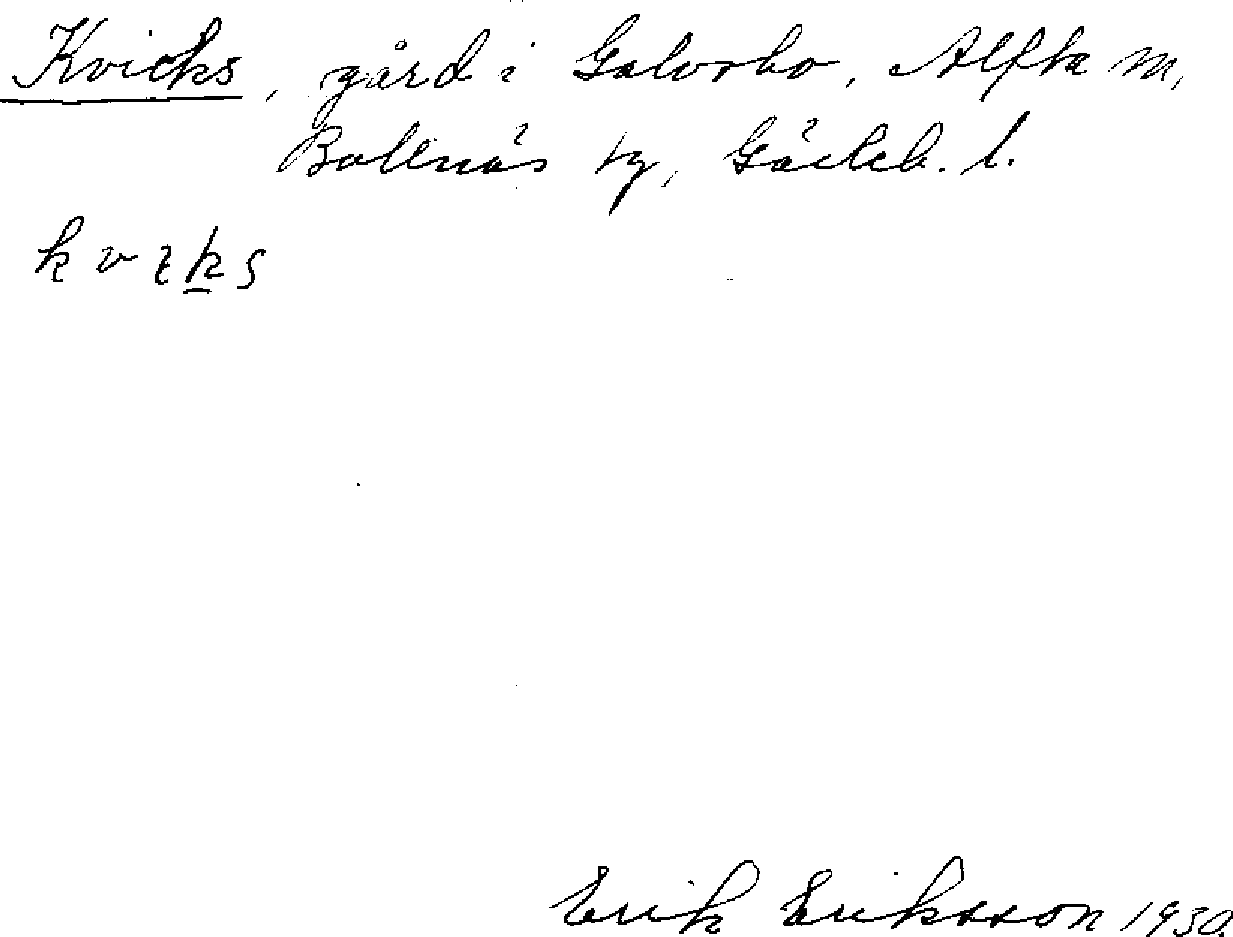 Kvicks, gård i Galvsbo, Alfta sn,
Bollnäs tg, Gävleb. l.
kvıks
Erik Eriksson 1930.